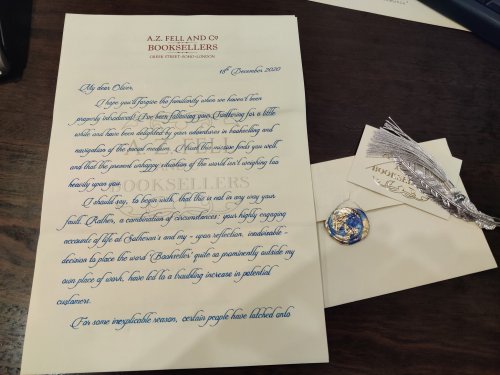 A.Z. FELL AND Co
BOOKSELLERS
GREEK STREET · SOHO · LONDON
18th December 2020
My dear Oliver,
I hope you'll forgive the familiarity when we haven't been
properly introduced! I've been following your Twittering for a little
while and have been delighted by your adventures in bookselling and
navigation of the social medium. I trust this missive finds you well,
and that the present unhappy situation of the world isn't weighing too
heavily upon you.
BOOKSELLERS
I should say, to begin with, that this is not in any way your
fault. Rather, a combination of circumstances: your highly engaging
accounts of life at Sotheran's and my - upon reflection, inadvisable -
decision to place the word 'Bookseller' quite so prominently outside my
own place of work, have led to a troubling increase in potential
customers.
For some inexplicable reason, certain people have latched onto
BOOKSELLERS